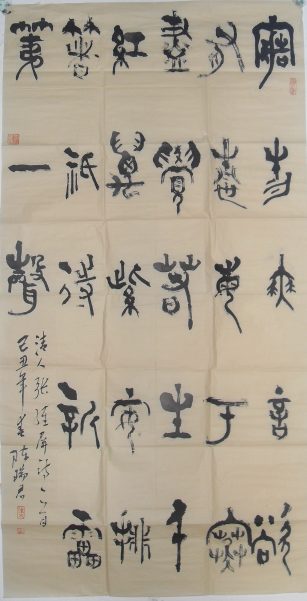 造物無言卻
有情每于寒
盡覺春生千
紅萬紫安排
著祇待新雷
第一聲
清人张維屏诗一首
己丑年春陈瑞君